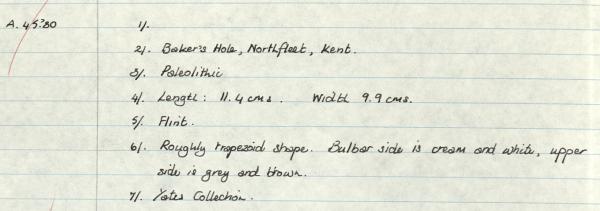 A. 45:80 1/.
2/. Baker's Hole, Northfleet, Kent.
3/. Paleolithic
4/. Length: 11.4 cms. Width 9.9 cms.
5/. Flint.
6/. Roughly trapezoid shape. Bulbar side is cream and white, upper
side is grey and brown.
7/. Yates Collection.